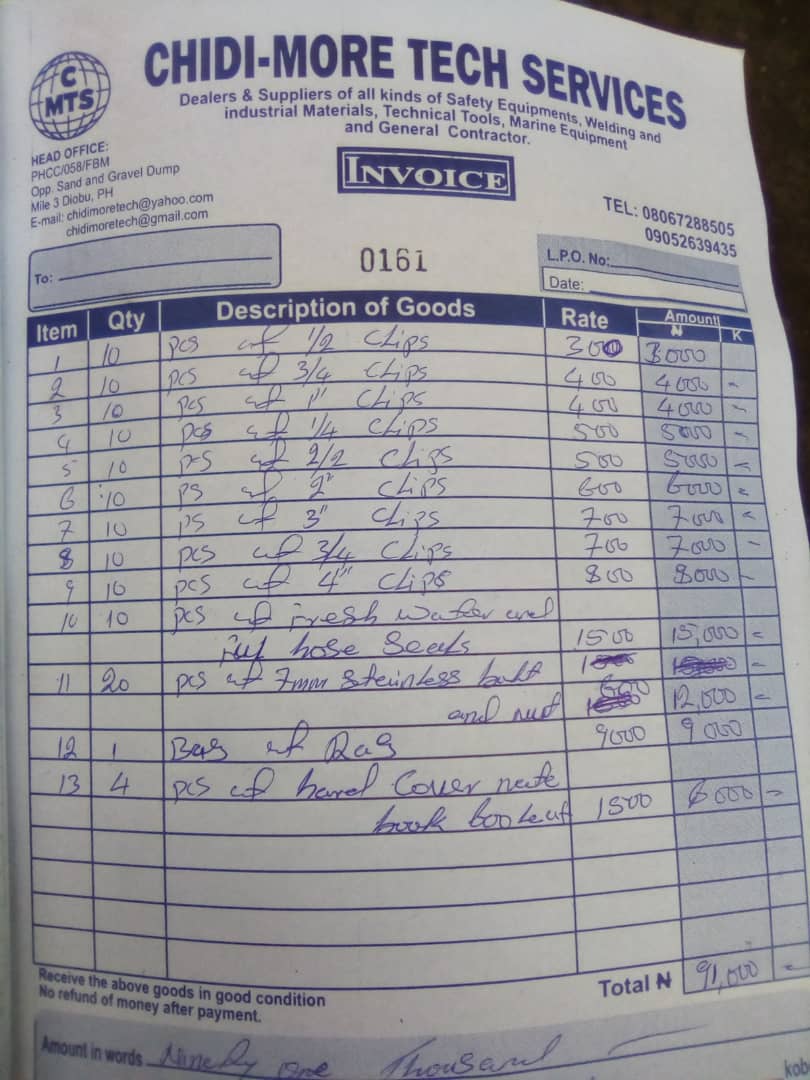 CHIDI-MORE TECH SERVICES
C
MTS
Dealers & Suppliers of all kinds of Safety Equipments, Welding and
industrial Materials, Technical Tools, Marine Equipment
and General Contractor.
HEAD OFFICE:
PHCC/058/FBM
Opp. Sand and Gravel Dump
Mile 3 Diobu, PH
E-mail: chidimoretech@yahoo.com
chidimoretech@gmail.com
INVOICE
TEL: 08067288505
09052639435
To:
0161
L.P.O. No:
Date:
Item Qty Description of Goods Rate Amount
₦ K
1 10 pcs of 1/2 Clips 300 3000
2 10 pcs of 3/4 Clips 400 4000 =
3 10 pcs of 1" Clips 400 4000 =
4 10 pcs of 1/4 Clips 500 5000 =
5 10 pcs of 2/2 Clips 500 5000 =
6 10 ps of 2" Clips 600 6000 =
7 10 ps of 3" Clips 700 7000 =
8 10 pcs of 3/4 Clips 700 7000 =
9 10 pcs of 4" Clips 800 8000 =
10 10 pcs of Fresh water and
hose Seals 1500 15,000 =
11 20 pcs of 7mm Steinless bolt
and nut 600 12,000 =
12 1 Bag of Rag 9000 9000
13 4 pcs of hard Cover note
book 1500 6000 =
Total ₦ 91,000 =
Receive the above goods in good condition
No refund of money after payment.
Amount in words Ninety one Thousand
kob